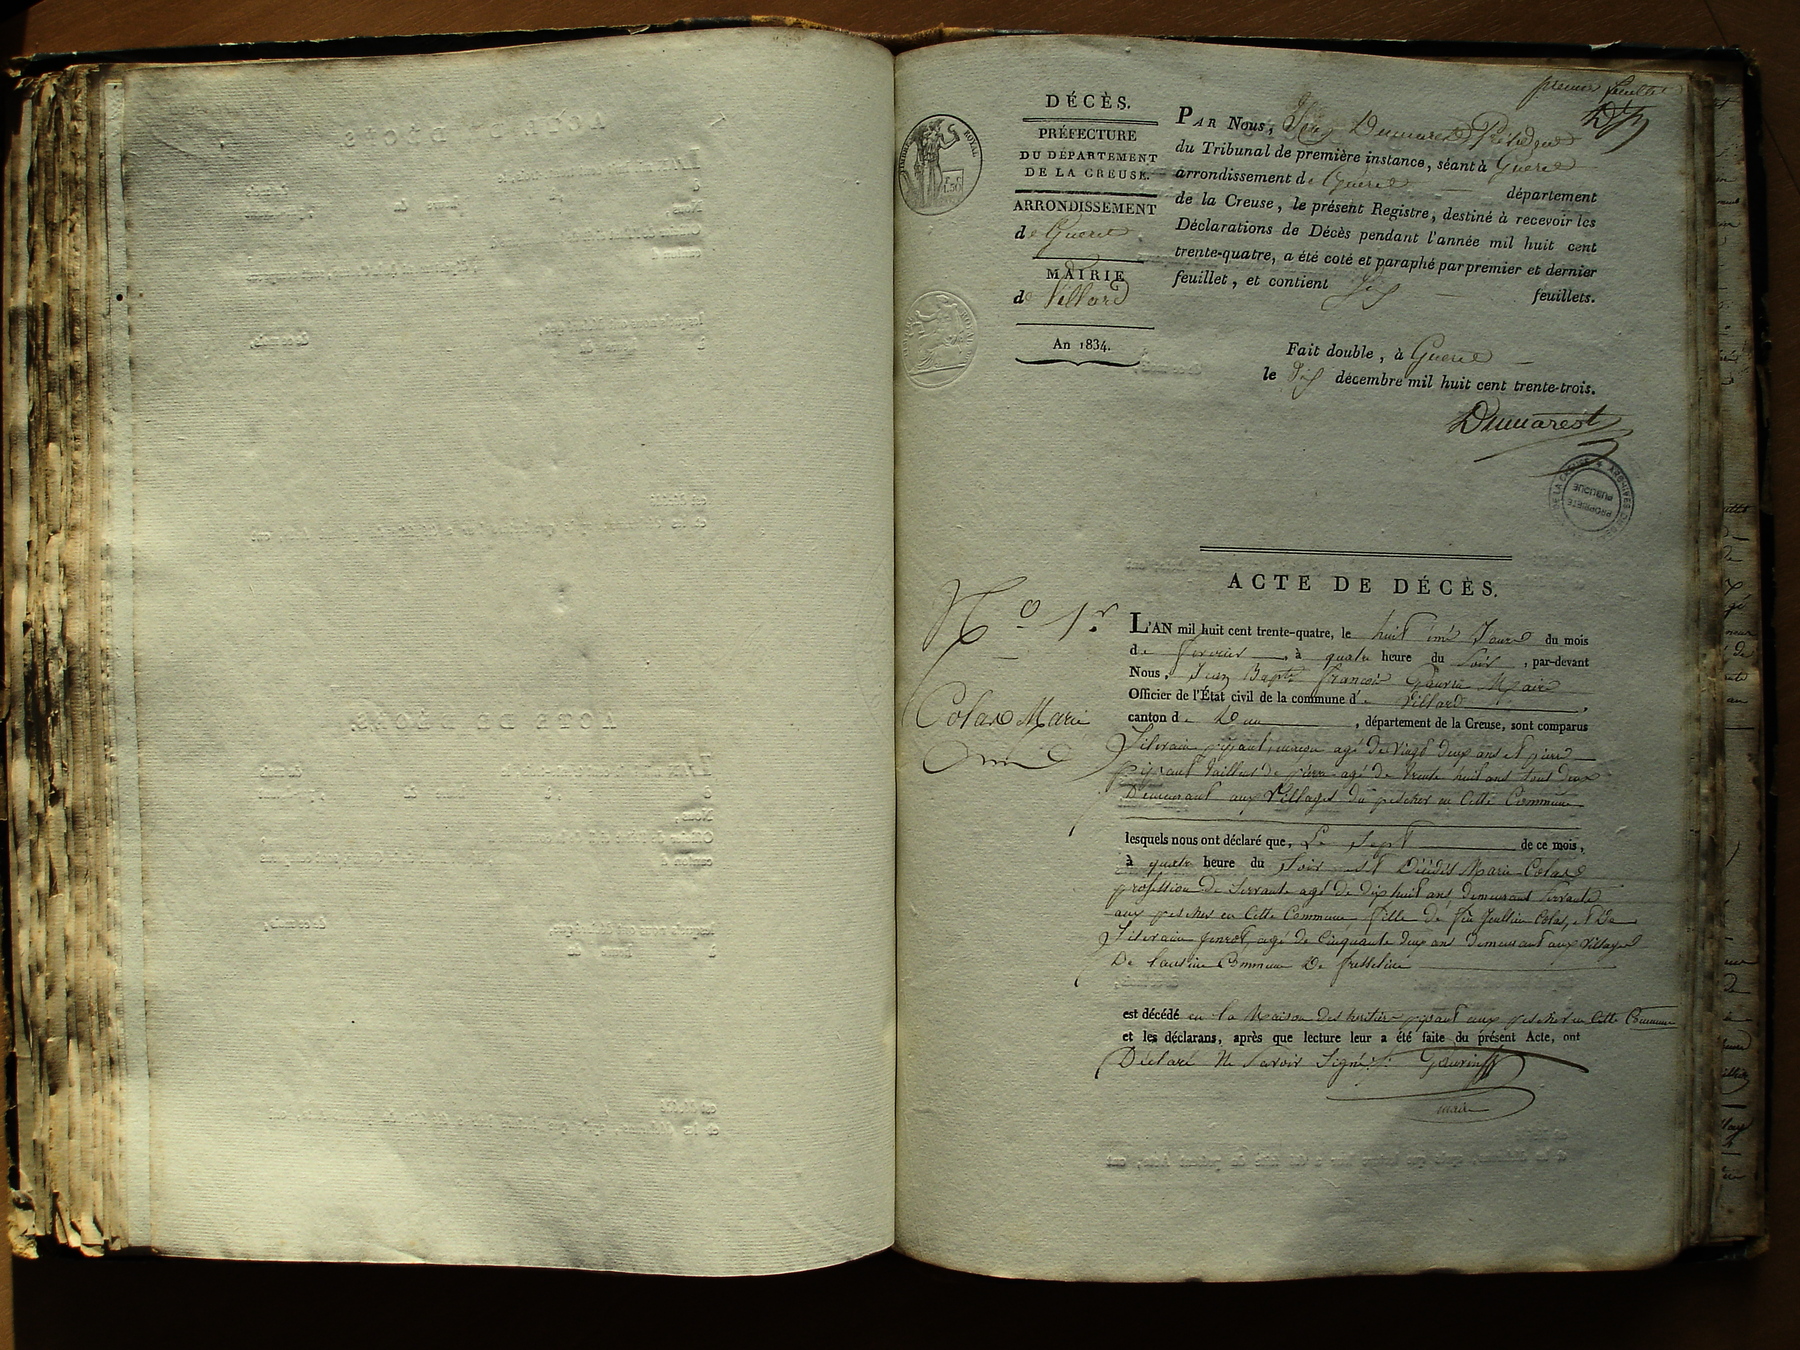 premier feuillet
DÉCÈS.
PRÉFECTURE
DU DÉPARTEMENT
DE LA CREUSE.
ARRONDISSEMENT
de Gueret
MAIRIE
de Villard
An 1834.
PAR Nous, Dumarest Président
du Tribunal de première instance, séant à Gueret
arrondissement de Gueret département
de la Creuse, le présent Registre, destiné à recevoir les
Déclarations de Décès pendant l'année mil huit cent
trente-quatre, a été coté et paraphé par premier et dernier
feuillet, et contient feuillets.
Fait double, à Gueret
le décembre mil huit cent trente-trois.
Dumarest
ARCHIVES DE LA CREUSE
PROPRIÉTÉ
PUBLIQUE
ACTE DE DÉCÈS.
No 1r
Colas Marie
L'AN mil huit cent trente-quatre, le huit ème Jour du mois
de fevrier, à quatre heure du soir, par-devant
Nous, Jean Bapte francois Gaurin Maire
Officier de l'État civil de la commune de Villard,
canton de Dun, département de la Creuse, sont comparus
Silvain pipaut, maçon agé de vingt deux ans et pierre
pipaut tailleur de pierre agé de trente huit ans tout deux
Demeurant aux Villages du pescher en Cette Commune
lesquels nous ont déclaré que, Le sept de ce mois,
à quatre heure du soir est Décédés Marie Colas
profession de servante agé de dix huit ans, demeurant servante
aux pescher en Cette Commune, fille de feu Colas, et De
Silvaine agé de Cinquante deux ans demeurant aux Village
De Commune De fresseline
est décédé en la Maison des heritier pipaut aux pescher en Cette Commune
et les déclarans, après que lecture leur a été faite du présent Acte, ont
Déclaré Ne savoir Signé. Gaurin
maire